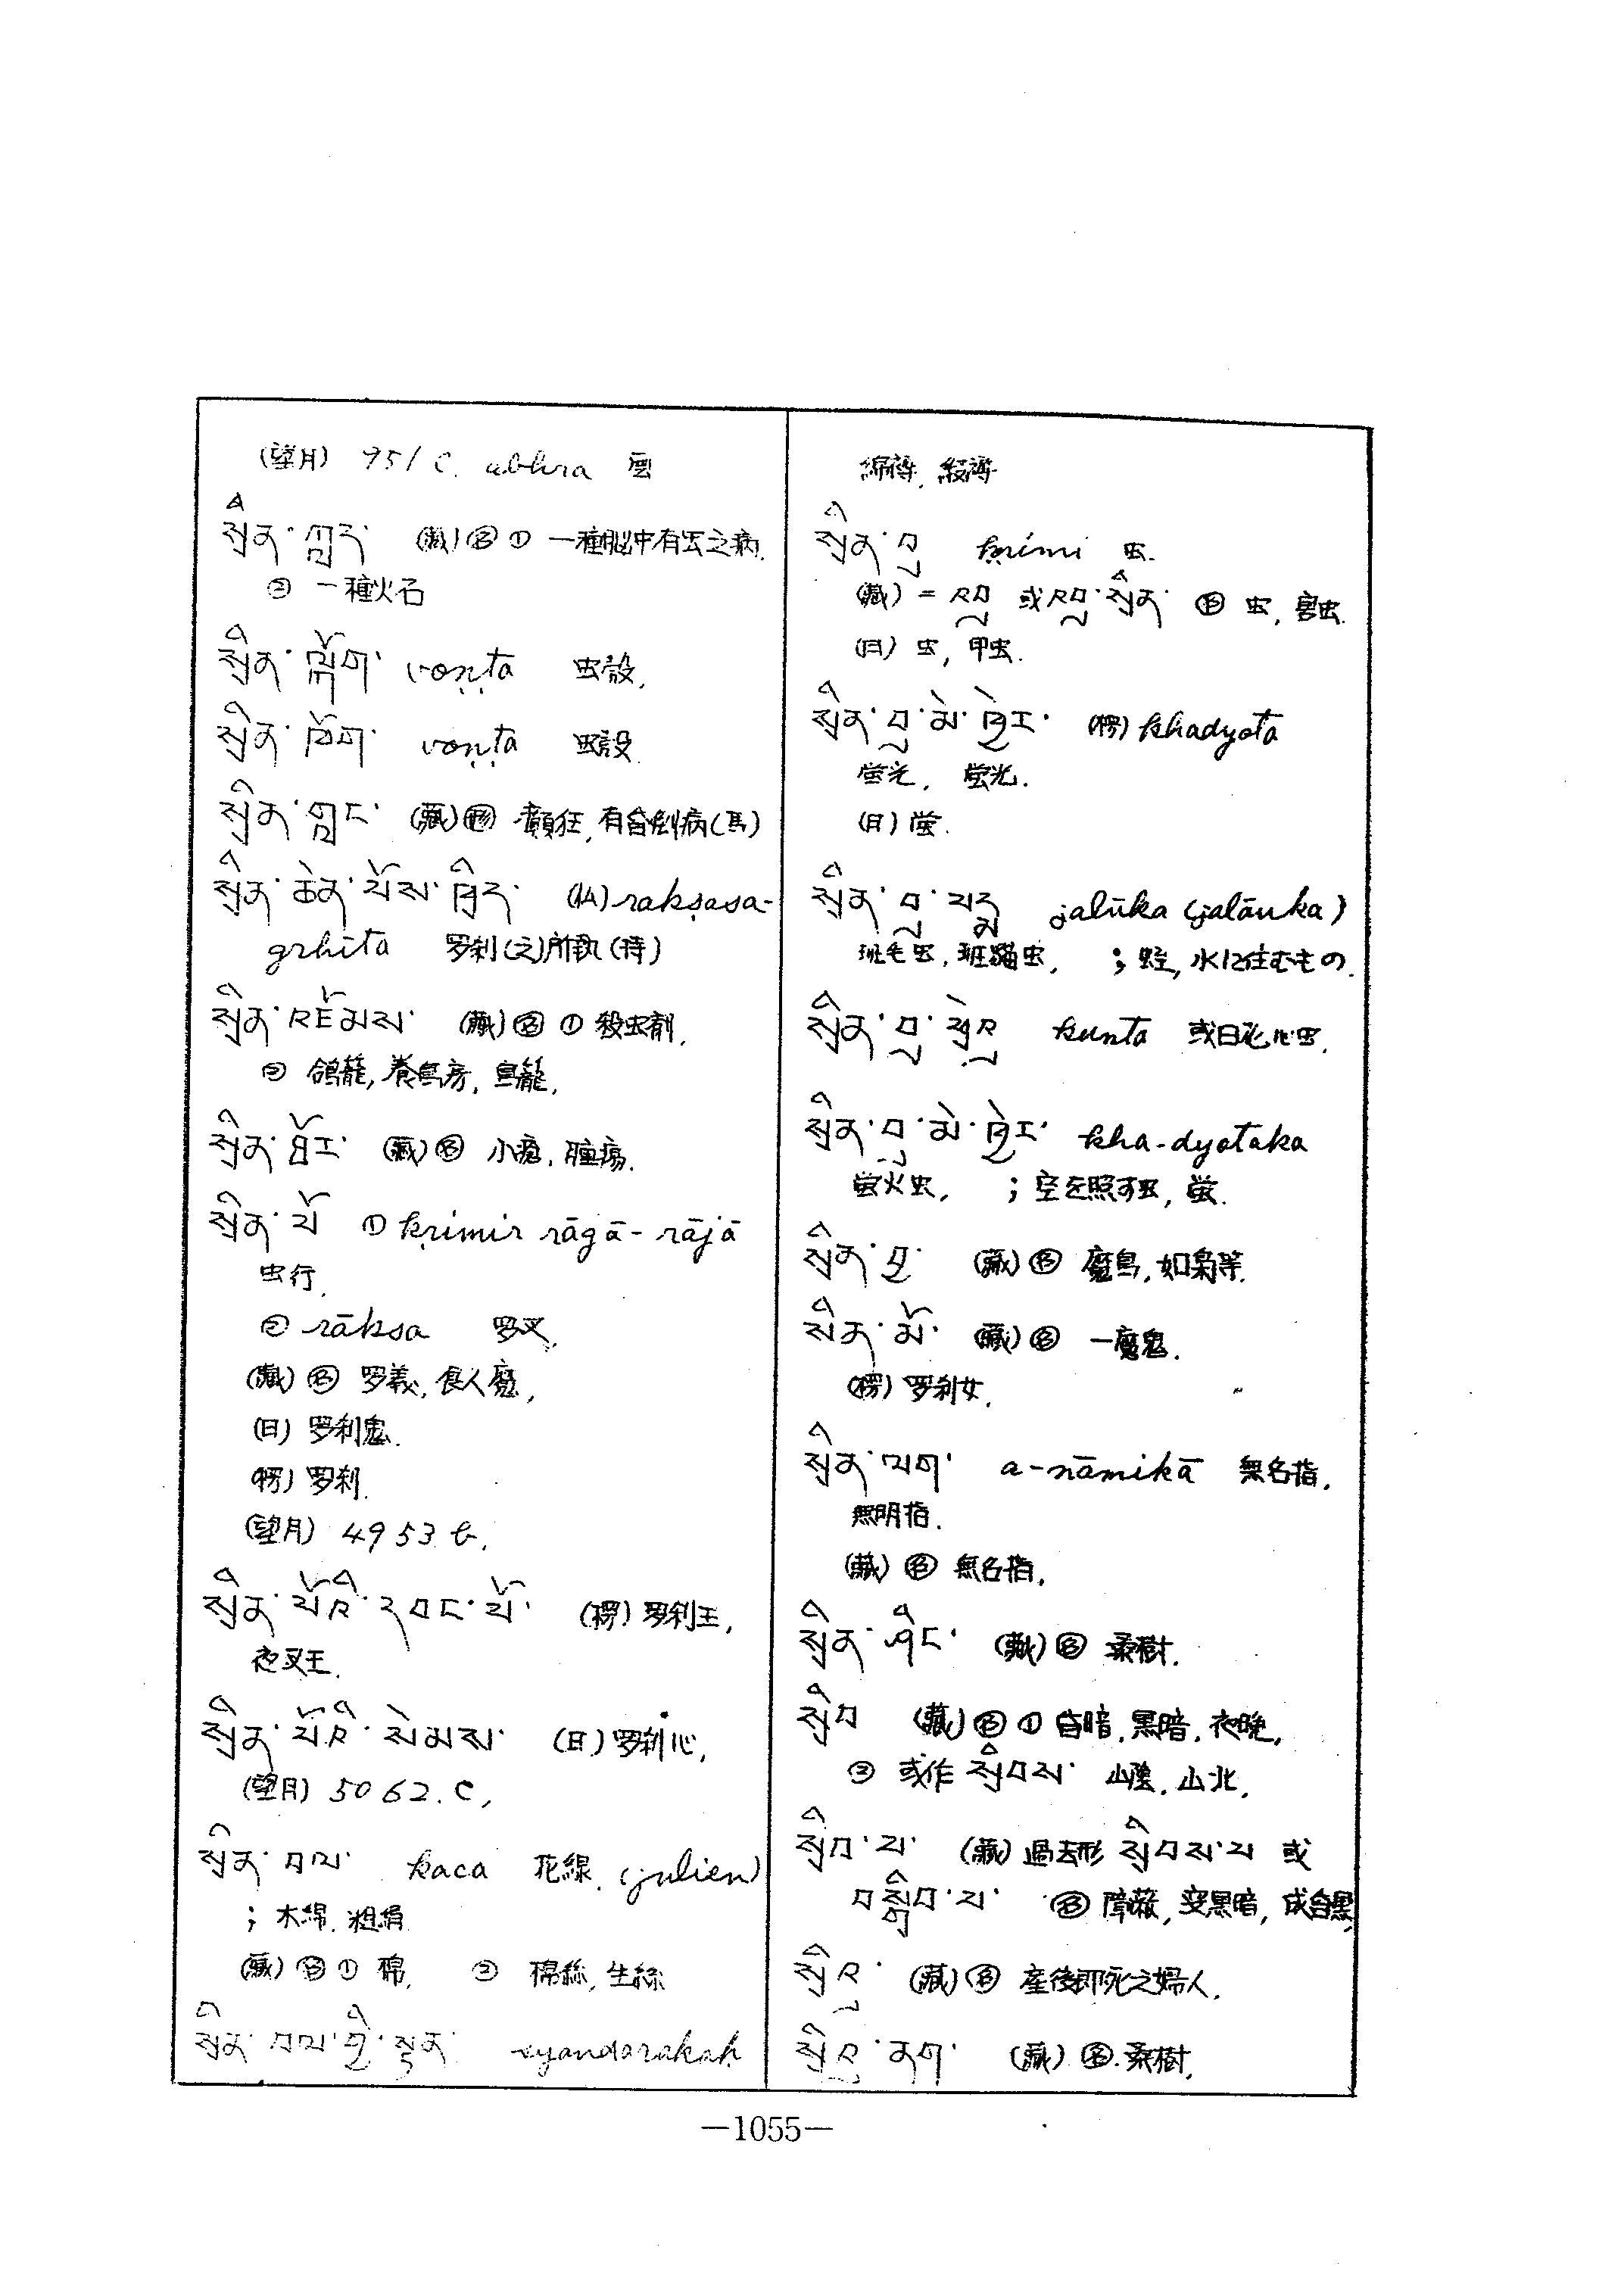 (望月) 951 c. abhra 雲
སྲིན་ཀླད་ (藏)名① 一種腦中有虫之病.
② 一種火石
སྲིན་སྐོག་ voṇṭa 虫殼,
སྲིན་ཁོག་ voṇṭa 虫設.
སྲིན་གླང་ (藏) 癲狂,有昏倒病(馬)
སྲིན་ཆེན་པོས་ཁྲིད་ rakṣasa-
gṛhīta 罗刹(之)所執(持)
སྲིན་འཇོམས་ (藏)名① 殺虫劑,
② 鴿籠,養鳥房,鳥籠,
སྲིན་ཐོར་ (藏)名 小瘡,腫瘍.
སྲིན་པོ ① kṛimir rāgā-rājā
虫行,
② rākṣa 罗叉,
(藏)名 罗義,食人魔,
(日) 罗刹鬼.
(楞) 罗刹.
(望月) 4953 b,
སྲིན་པོའི་དབང་པོ་ (楞) 罗刹王,
夜叉王,
སྲིན་པོའི་སེམས་ (日) 罗刹心,
(望月) 5062. c,
སྲིན་བལ་ kaca 花線. (julien)
; 木綿. 粗絹
(藏)名① 棉, ② 棉絲,生絲
སྲིན་བལ་གྱི་སྟན་ syandarakaḥ
綿褥,
སྲིན་བུ kṛimi 虫.
(藏) = འབུ 或 འབུ་སྲིན་ 名 虫, 害虫.
(日) 虫, 甲虫.
སྲིན་བུ་མེ་ཁྱེར་ (楞) khadyota
螢光, 螢光.
(日) 螢.
སྲིན་བུ་པདྨ jalūka (jalāuka)
班毛虫, 班蟊虫, ; 蛭, 水に住むもの.
kunta
སྲིན་བུ་མེ་ཁྱེར་ kha-dyotaka
螢火虫, ; 空を照す虫, 螢.
སྲིན་བྱ་ (藏)名 魔鳥,如梟等.
སྲིན་མོ་ (藏)名 一魔鬼.
(楞) 罗刹女,
སྲིན་ལག་ a-nāmikā 無名指,
無明指.
(藏)名 無名指,
སྲིན་ཤིང་ (藏)名 桑樹.
སྲིབ (藏)名① 昏暗,黑暗,夜晚,
② 或作 སྲིབས་ 山陰,山北,
སྲིབ་པ་ (藏) 過去形 སྲིབས་པ 或
བསྒྲིབ་པ་ 名 障蔽,変黑暗,成自黑,
སྲིའུ་ (藏)名 産後即死之婦人,
སྲིའུ་ནག་ (藏)名 桑樹,
—1055—